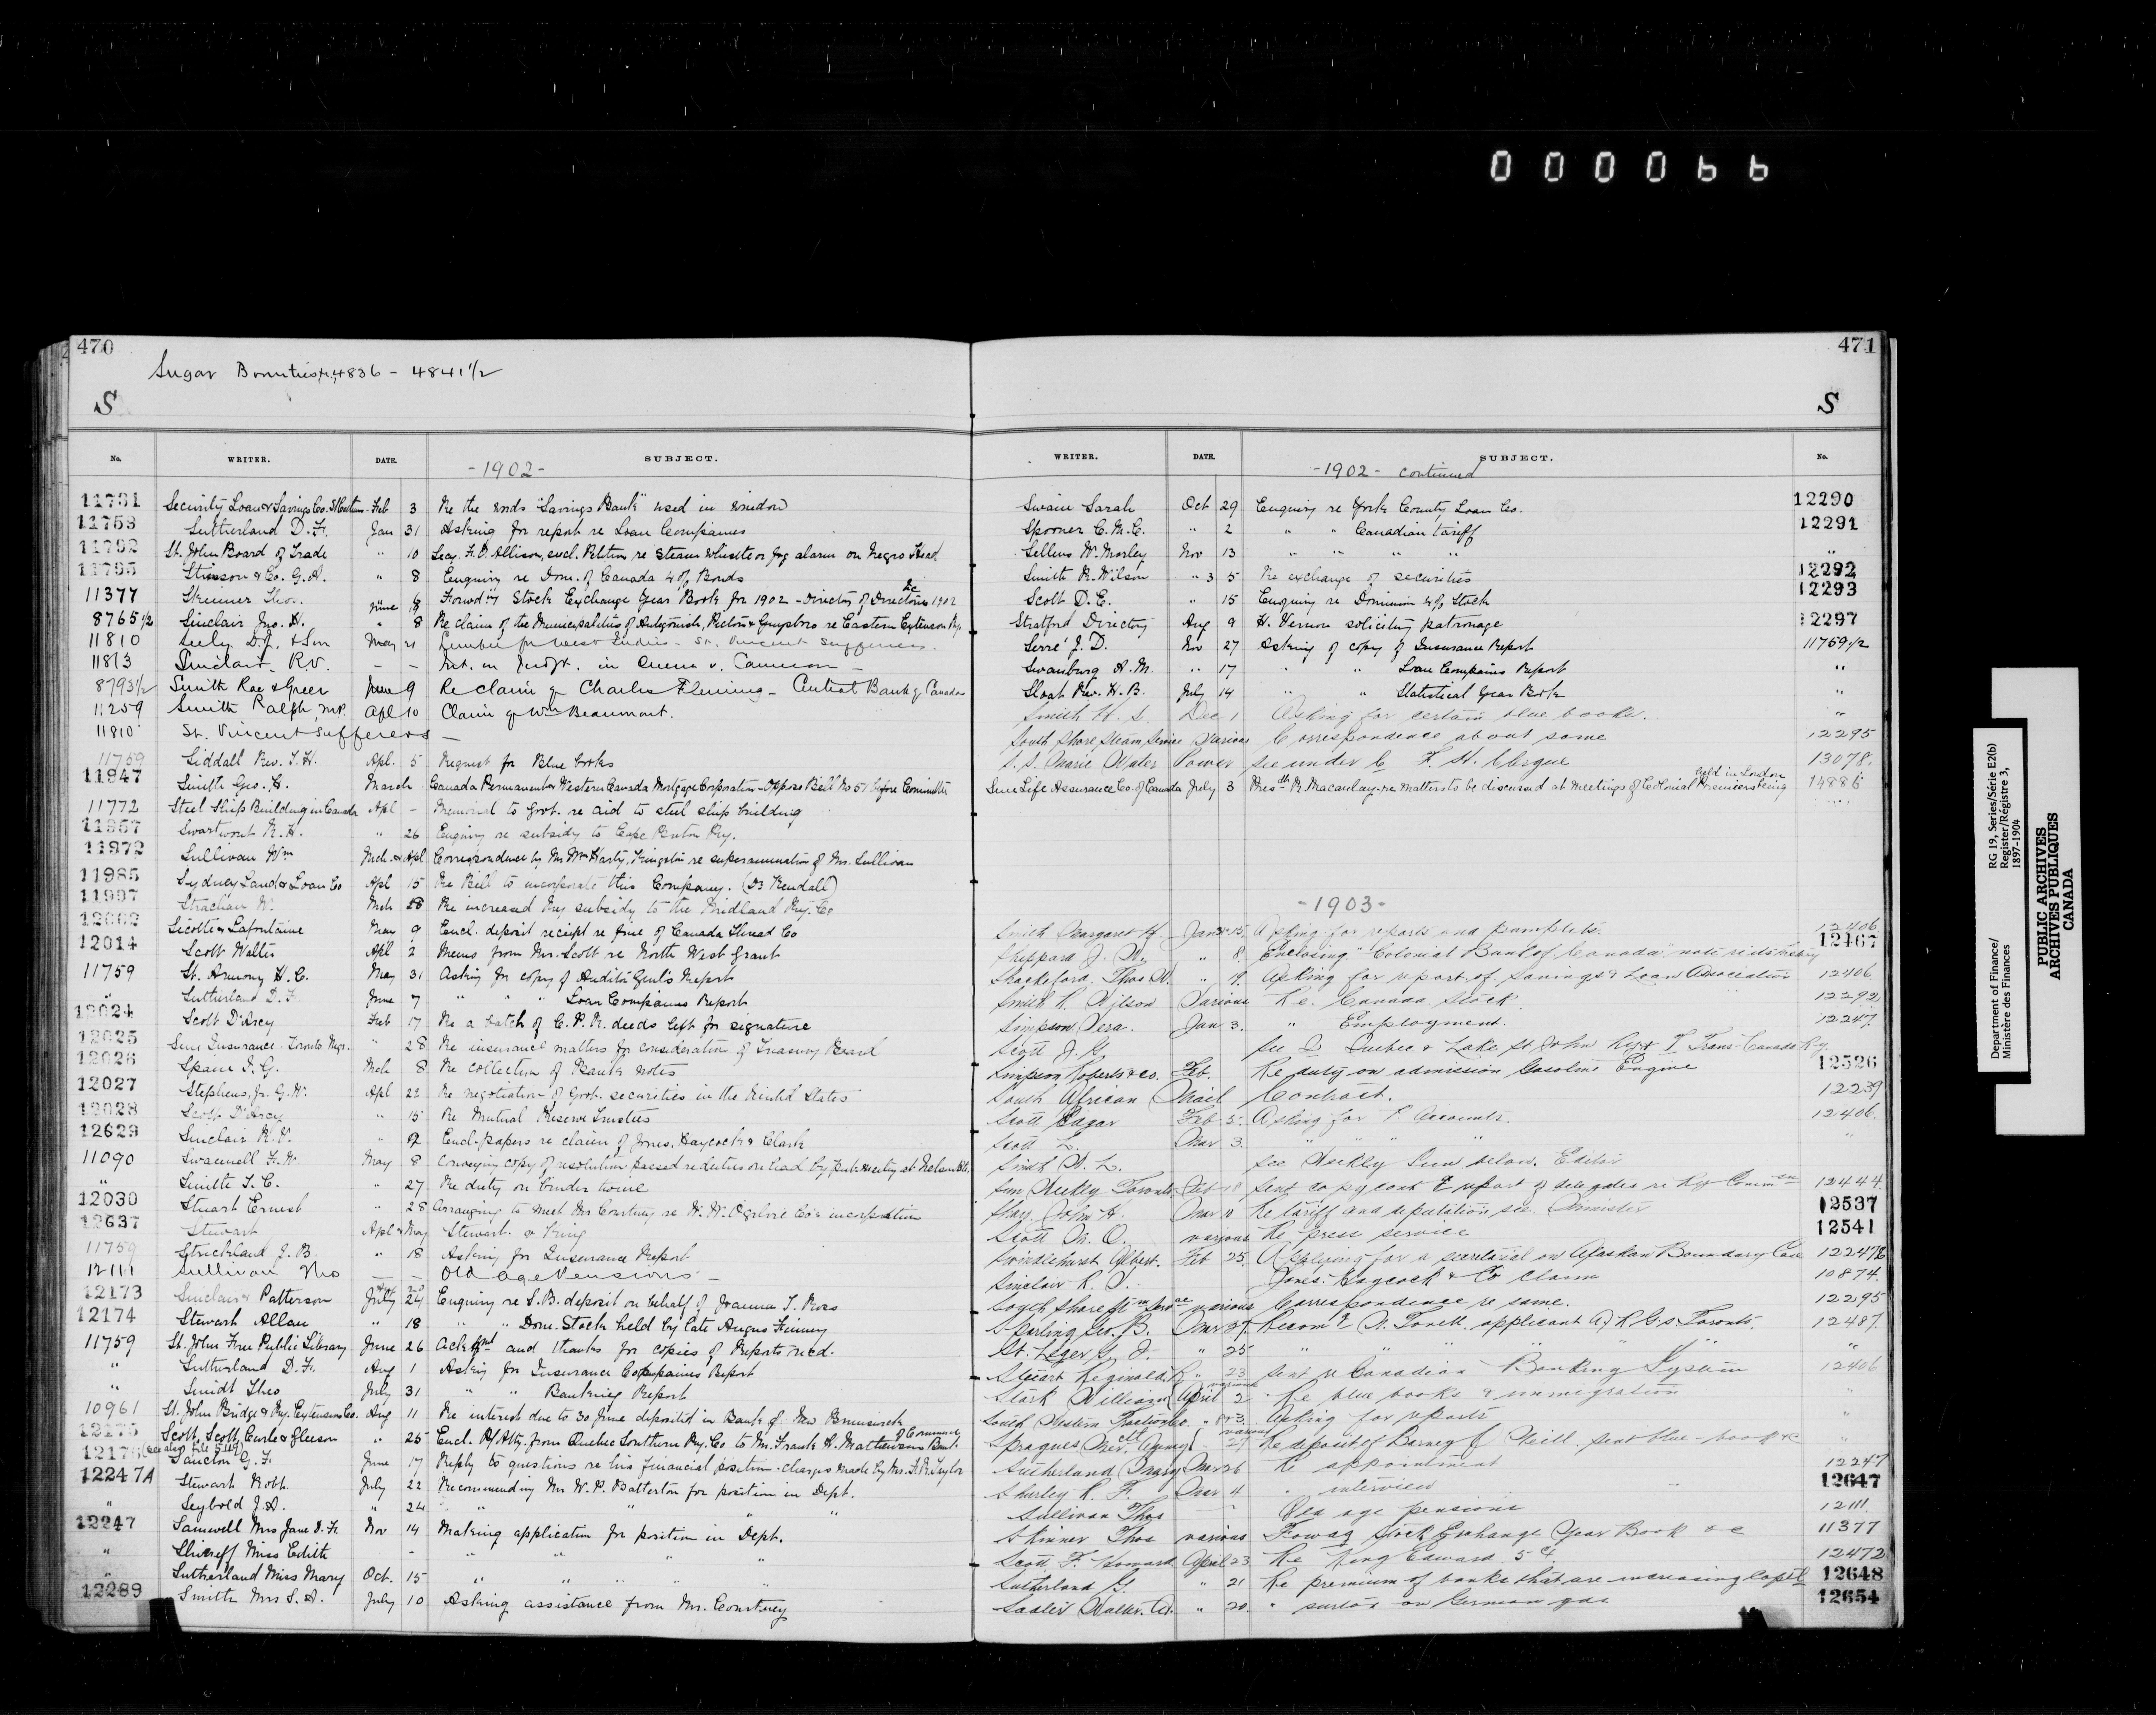 000066
470
Sugar Bounties, &c, 4836 - 4841 1/2
S
No. WRITER. DATE. SUBJECT.
-1902-
11731 Security Loan & Savings Co. St Cath Feb 3 Re the words "Savings Bank" used in window
11759 Sutherland D. F. Jan 31 Asking for report re Loan Companies
11792 St. John Board of Trade " 10 Secy. F. O. Allison, encl. Petition re steam whistle or fog alarm on Negro Head
11795 Stimson & Co. G. A. " 8 Enquiry re Dom. of Canada 4% Bonds
11377 Skinner Thos. June 6 18 Forwdg Stock Exchange Year Book for 1902 - Directory of Directors 1902 &c
8765 1/2 Sinclair Jno. H. " 8 Re claim of the Municipalities of Antigonish, Pictou & Guysboro re Eastern Extension Ry.
11810 Seely D. J. & Son May 21 Lumber for West Indies - St. Vincent Sufferers.
11813 Sinclair R. V. - - Int. on Judgt. in Queen v. Cameron -
8793 1/2 Smith Rae & Greer June 9 Re claim of Charles Fleming - Central Bank of Canada
11259 Smith Ralph, M.P. Apl 10 Claim of Wm Beaumont.
11810 St. Vincent Sufferers -
11759 Siddall Rev. J. H. Apl. 5 Request for Blue books
11847 Smith Geo. H. March Canada Permanent & Western Canada Mortgage Corporation - Oppose Bill No 57 before Committee
11772 Steel Ship Building in Canada Apl - Memorial to Govt. re aid to steel ship building
11957 Swartwout R. H. " 26 Enquiry re subsidy to Cape Breton Ry.
11972 Sullivan Wm Mch. & Apl Correspondence by Mr Wm Harty, Kingston re superannuation of Mr. Sullivan
11985 Sydney Land & Loan Co Apl 15 Re Bill to incorporate this Company. (Dr Kendall)
11997 Strachan W. Mch 28 Re increased Ry subsidy to the Midland Ry. Co
12002 Sicotte & Lafontaine May 9 Encl. deposit receipt re fine of Canada Thread Co
12014 Scott Walter Apl 2 Memo from Mr. Scott re North West Grant
11759 St. Armony H. C. May 31 Asking for copy of Auditor Genl's Report
" Sutherland D. F. June 7 " " " Loan Companies Report
12024 Scott D'Arcy Feb 17 Re a batch of C. P. R. deeds left for signature
12025 Sun Insurance - Toronto Mgr. " 28 Re insurance matters for consideration of Treasury Board
12026 Spain J. G. Mch 8 Re collection of Bank Notes
12027 Stephens, Jr. G. W. Apl 22 Re negotiation of Govt. securities in the United States
12028 Scott D'Arcy " 15 Re Mutual Reserve Trustees
12629 Sinclair R. V. " 12 Encl. papers re claim of Jones, Haycock & Clark
11090 Swannell F. W. May 8 Conveying copy of resolution passed re duties on lead by pub. meeting at Nelson B.C.
" Smith T. C. " 27 Re duty on binder twine
12030 Stuart Ernest " 28 Arranging to meet Mr Courtney re W. W. Ogilvie Co's incorporation
12637 Stewart Apl & May Stewart & King
11759 Strickland J. B. " 18 Asking for Insurance Report
12111 Sullivan Thos - - Old Age Pensions -
12173 Sinclair & Patterson July 24 Enquiry re S. B. deposit on behalf of Joanna T. Ross
12174 Stewart Allan " 18 " " Dom. Stock held by late Angus Finney
11759 St. John Free Public Library June 26 Ackgmt and thanks for copies of Reports recd.
" Sutherland D. F. Aug 1 Asking for Insurance Companies Report
" Smidt Theo July 31 " " Banking Report
10961 St. John Bridge & Ry. Extension Co. Aug 11 Re interest due to 30 June deposited in Bank of New Brunswick
12175 Scott, Scott, Curle & Gleeson " 25 Encl. P/Atty. from Quebec Southern Ry. Co to Mr. Frank H. Mathewson Bank of Commerce
12176 (see also file 5419) Sancton G. F. June 17 Reply to questions re his financial position - charges made by Mr. F. R. Taylor
12247A Stewart Robt. July 22 Recommending Mr W. P. Batterton for position in Dept.
" Seybold J. A. " 24 " " "
12247 Samwell Mrs Jane D. F. Nov 14 Making application for position in Dept.
" Shirreff Miss Edith - " " " "
" Sutherland Miss Mary Oct. 15 " " " "
12289 Smith Mrs S. A. July 10 Asking assistance from Mr. Courtney
471
S
WRITER. DATE. SUBJECT. No.
-1902- continued
Swain Sarah Oct 29 Enquiry re York County Loan Co. 12290
Spooner C. M. C. " 2 " " Canadian tariff 12291
Sellens W. Morley Nov 13 " " " " "
Smith R. Wilson " 3 5 Re exchange of securities 12292
Scott D. C. " 15 Enquiry re Dominion 4% Stock 12293
Stratford Directory Aug 9 H. Vernon soliciting patronage 12297
Serré J. D. Nov 27 Asking of copy of Insurance Report 11759 1/2
Swanburg A. M. " 17 " " Loan Companies Report "
Sloat Rev. H. B. July 14 " " Statistical Year Book "
Smith H. S. Dec 1 Asking for certain blue books. "
South Shore Steam Service Various Correspondence about same 12295
S. S. Marie Water Power see under C F. H. Clergue 13078.
Sun Life Assurance Co. of Canada July 3 Presdt R. Macaulay - re matters to be discussed at meetings of Colonial Premiers being held in London 14886
-1903-
Smith Margaret H. Jan 15 Asking for reports and pamplets. 12406
Sheppard J. W. " 8. Enclosing "Colonial Bank of Canada" note re its history 12467
Shackeford. Thos W. " 19. Asking for report of Savings & Loan Association 12406
Smith R. Wilson Various Re. Canada Stock 12292
Simpson Vera. Jan 3. " Employment. 12247
Scott J. G. See Q Quebec & Lake St John Ry & T Trans-Canada Ry.
Simpson Roberts & Co. Feb. Re duty on admission Gasoline Engine 12526
South African Mail Contract. 12239
Scott Edgar Feb 5. Asking for P. Accounts. 12406.
Scott L. Mar 3. " " " " "
Smith W. L. See Weekly Sun below. Editor
Sun Weekly Toronto Feb 18 Sent copy contg report of delegates re Ry Commsn 12444
Shay. John H. Mar 11 Re tariff and deputation see Minister 12537
Scott M. O. various Re press service 12541
Swindlehurst Albert. Feb 25. Applying for a secretarial on Alaskan Boundary Case 12247B
Sinclair R. V. Jones. Haycock & Co claim 10874.
South Shore Stm Service various Correspondence re same. 12295
Sparling Geo. B. Mar 27. Recomg W. Fonett. applicant A/ R G. s Toronto 12487.
St. Leger G. J. " 25 " " " " "
Stuart Reginald R " 23 sent re Canadian Banking System 12406
Stark William April 2 various Re blue books & immigration "
South Western Traction Co. " 3. Asking for reports "
Spragues Mer. Agency " 27 various Re deposit of Barney O'Neill. sent blue-book &c "
Sutherland Mary Mar 26 Re appointment 12247
Shurley R. F. Mar 4 " interview 12647
Sullivan Thos Old age pensions 12111.
Skinner Thos various Fowdg Stock Exchange Year Book &c 11377
Scott F. Howard April 23 Re King Edward 5¢. 12472
Sutherland G. " 21 Re premium of banks that are increasing Capitl 12648
Sadler Walter. A. " 20. " surtax on German gds 12654
Department of Finance/
Ministère des Finances
RG 19, Series/Série E2(b)
Register/Régistre 3,
1897-1904
PUBLIC ARCHIVES
ARCHIVES PUBLIQUES
CANADA